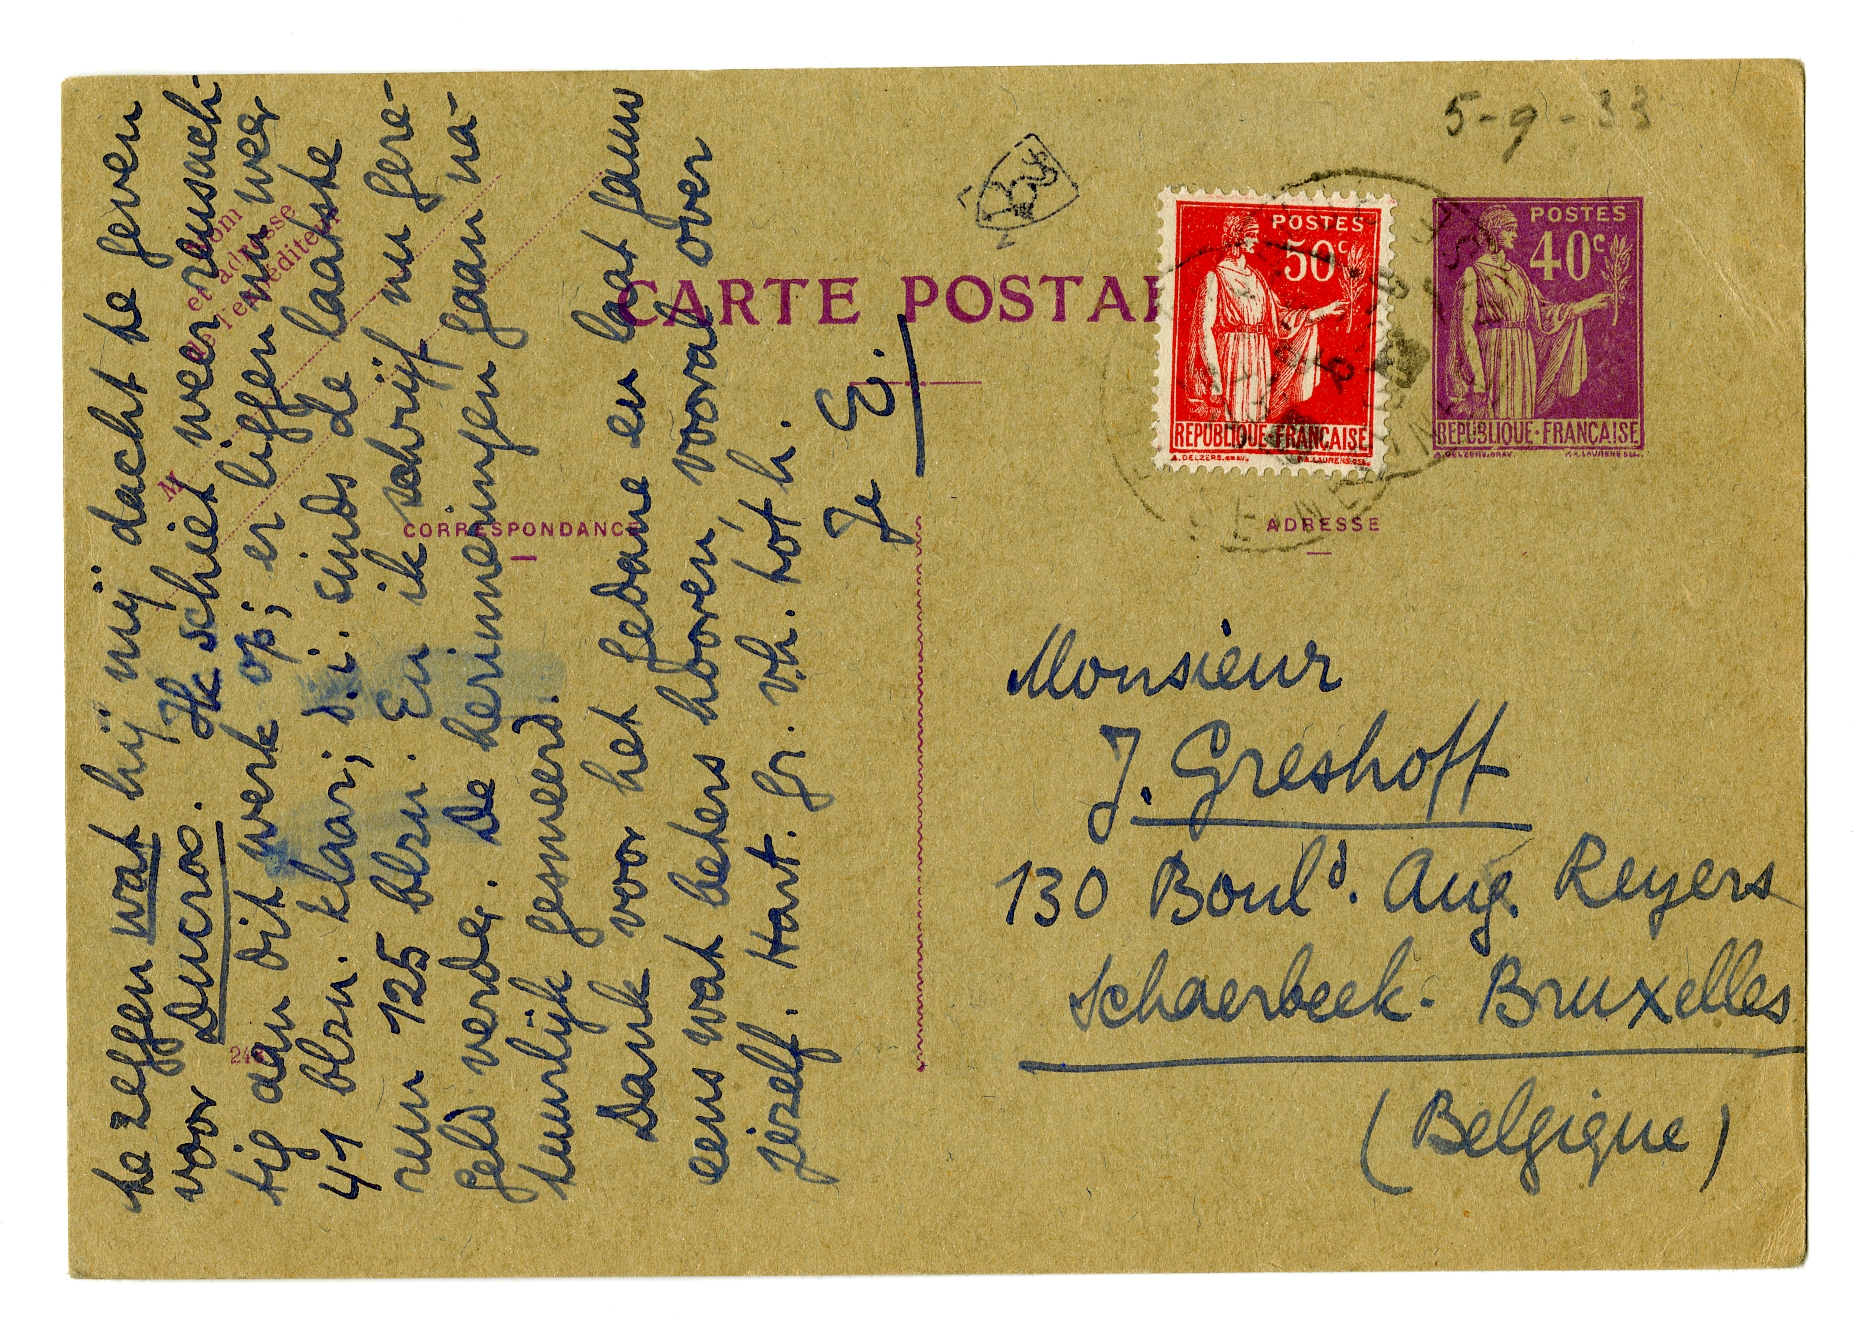 te zeggen wat hij mij dacht te geven
voor Ducroo. Ik schiet weer reusach-
tig aan dit werk op; er liggen nu weer
41 blzn. klaar; d.i. sinds de laatste
run 125 blzn. En ik schrijf nu gere-
geld verder. De herinneringen gaan na-
tuurlijk gesmeerd.
Dank voor het gedane en laat gauw
eens wat beters hooren, vooral over
jezelf. Hart. gr. v.h. tot h.
Je E.
Nom
et adresse
de l'expéditeur
M
CORRESPONDANCE
CARTE POSTAL
5-9-33
POSTES
50c
REPUBLIQUE·FRANÇAISE
A.DELZERS.GRAV. P.A.LAURENS.DEL.
POSTES
40c
REPUBLIQUE·FRANÇAISE
A.DELZERS.GRAV. P.A.LAURENS.DEL.
ADRESSE
Monsieur
J. Greshoff
130 Bould. Aug. Reyers
Schaerbeek-Bruxelles
(Belgique)